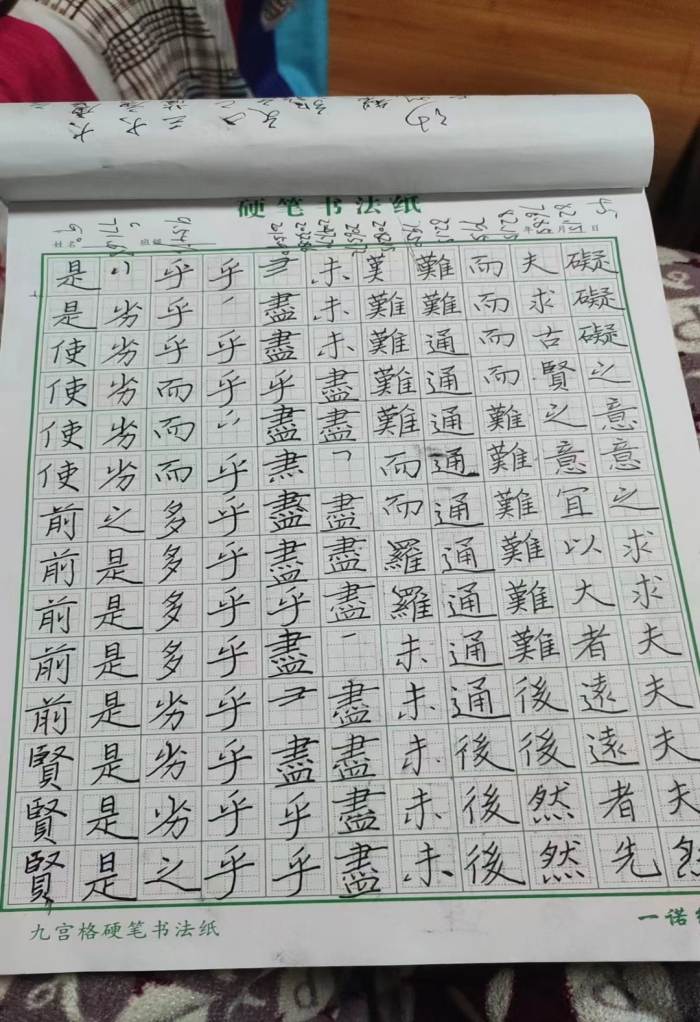 硬笔书法纸
姓名 班级 年 月 日
是 乎 乎 未 難 而 夫 礙
是 劣 乎 盡 未 難 難 而 求 礙
使 劣 乎 乎 盡 未 難 通 而 古 礙
使 劣 而 乎 乎 盡 難 通 而 賢 之
使 劣 而 盡 盡 難 通 難 之 意
使 劣 而 乎 而 通 難 意 意
前 之 多 乎 盡 盡 而 通 難 宜 之
前 是 多 乎 盡 盡 羅 通 難 以 求
前 是 多 乎 乎 盡 羅 通 難 大 求
前 是 多 乎 盡 未 通 難 者 夫
前 是 劣 乎 盡 未 通 後 遠 夫
賢 是 劣 乎 盡 盡 未 後 後 遠 夫
賢 是 劣 乎 乎 盡 未 後 然 者 夫
賢 是 之 乎 乎 盡 未 後 然 先
九宫格硬笔书法纸
一诺